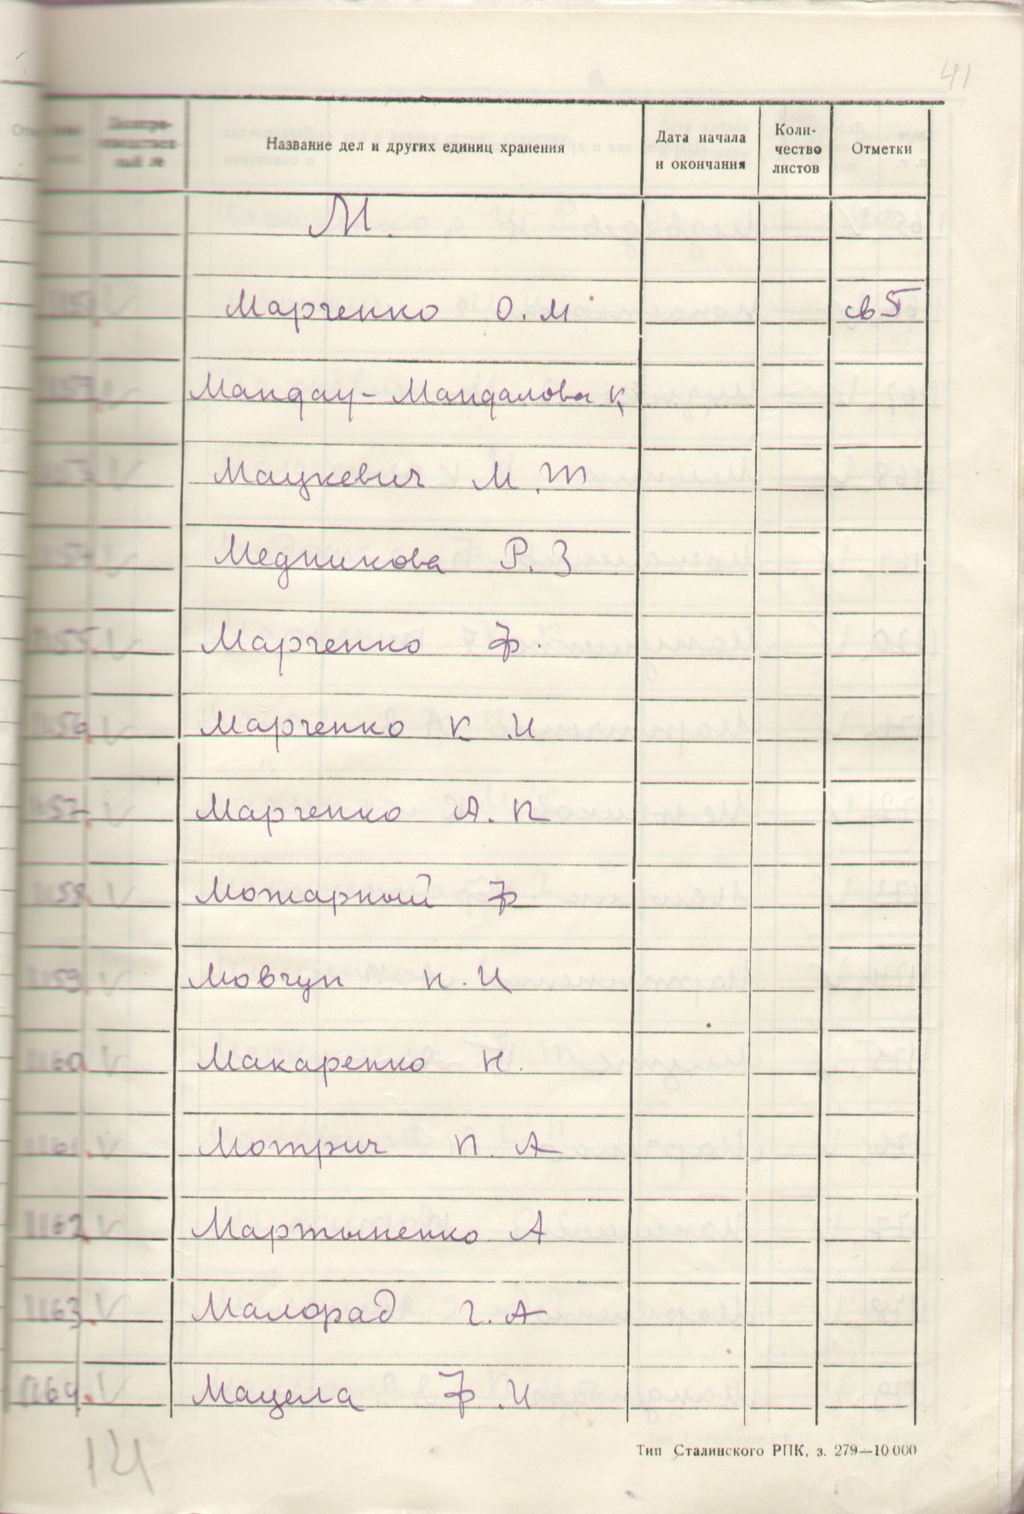 41
Название дел и других единиц хранения
Дата начала и окончания
Коли-
чество
листов
Отметки
М.
1151 Марченко О. М св 5
1152 Мандач - Мандалова К
1153 Мацкевич М. Т
1154 Медникова Р. З
1155 Марченко Ф.
1156 Марченко К. И
1157 Марченко А. П
1158 Можарный Ф
1159 Мовчун П. И
1160 Макаренко Н.
1161 Мотрич П. А
1162 Мартыненко А
1163 Малорад Г. А
1164 Мацела Ф. И
14
Тип Сталинского РПК, з. 279—10 000